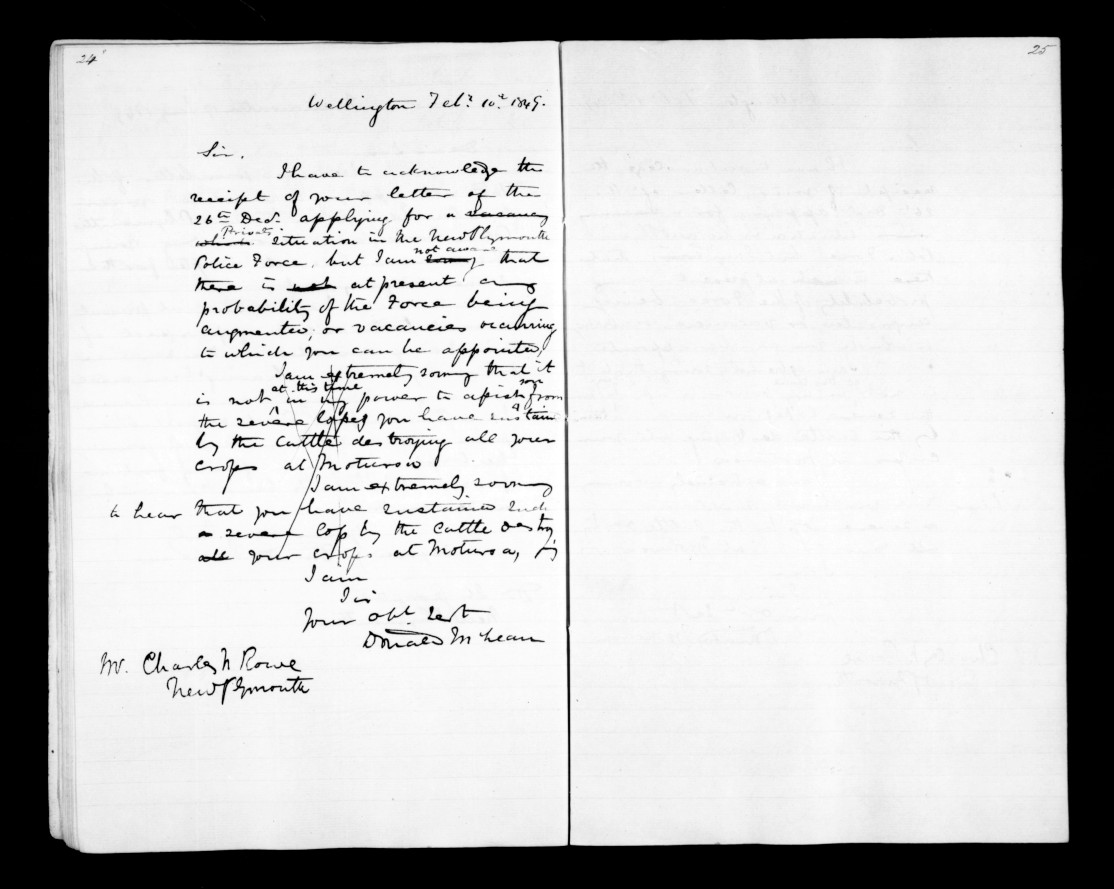 24
25
Wellington Feby. 10th. 1849.
Sir.
I have to acknowledge the
receipt of your letter of the
26th Decr. applying for a vacancy
which Privates situation in the New Plymouth
Police Force, but I am sorry not aware that
there is not at present any
probability of the Force being
augmented, or vacancies occurring
to which you can be appointed,
I am extremely sorry that it
is not at this time in my power to assist you from
the severe losses you have sustain
by the Cattle destroying all your
crops at Moturoa
I am extremely sorry
to hear that you have sustained such
a severe loss by the Cattle destroy
all your crops at Moturoa,
I am
Sir
Your obt. Servt
Donald McLean
Mr. Charles N Rowe
New Plymouth